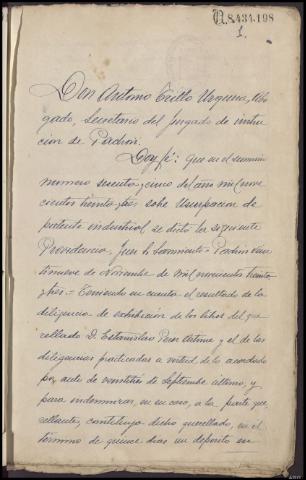 8.434.198
1.
Don Antonio Tello Abo-
gado, Secretario del Juzgado de instruc-
cion de Padrón.
Doy fé: Que en el sumario
numero sesenta y cinco del año mil nove
cientos treinta y tres sobre Usurpacion de
patente industrial se dictó la siguiente
Providencia. Juez Sr. Sarmiento = Padrón vein
tinueve de Noviembre de mil novecientos treinta
y tres. = Teniendo en cuenta el resultado de la
diligencia de exhibición de los libros del que
rellado D. Estanislao Perez Artime y el de las
diligencias practicadas a virtud de lo acordado
por auto de veintitres de Septiembre último, y
para indemnizar, en su caso, a la parte que
rellante, constituya dicho querellado, en el
término de quince dias un depósito en